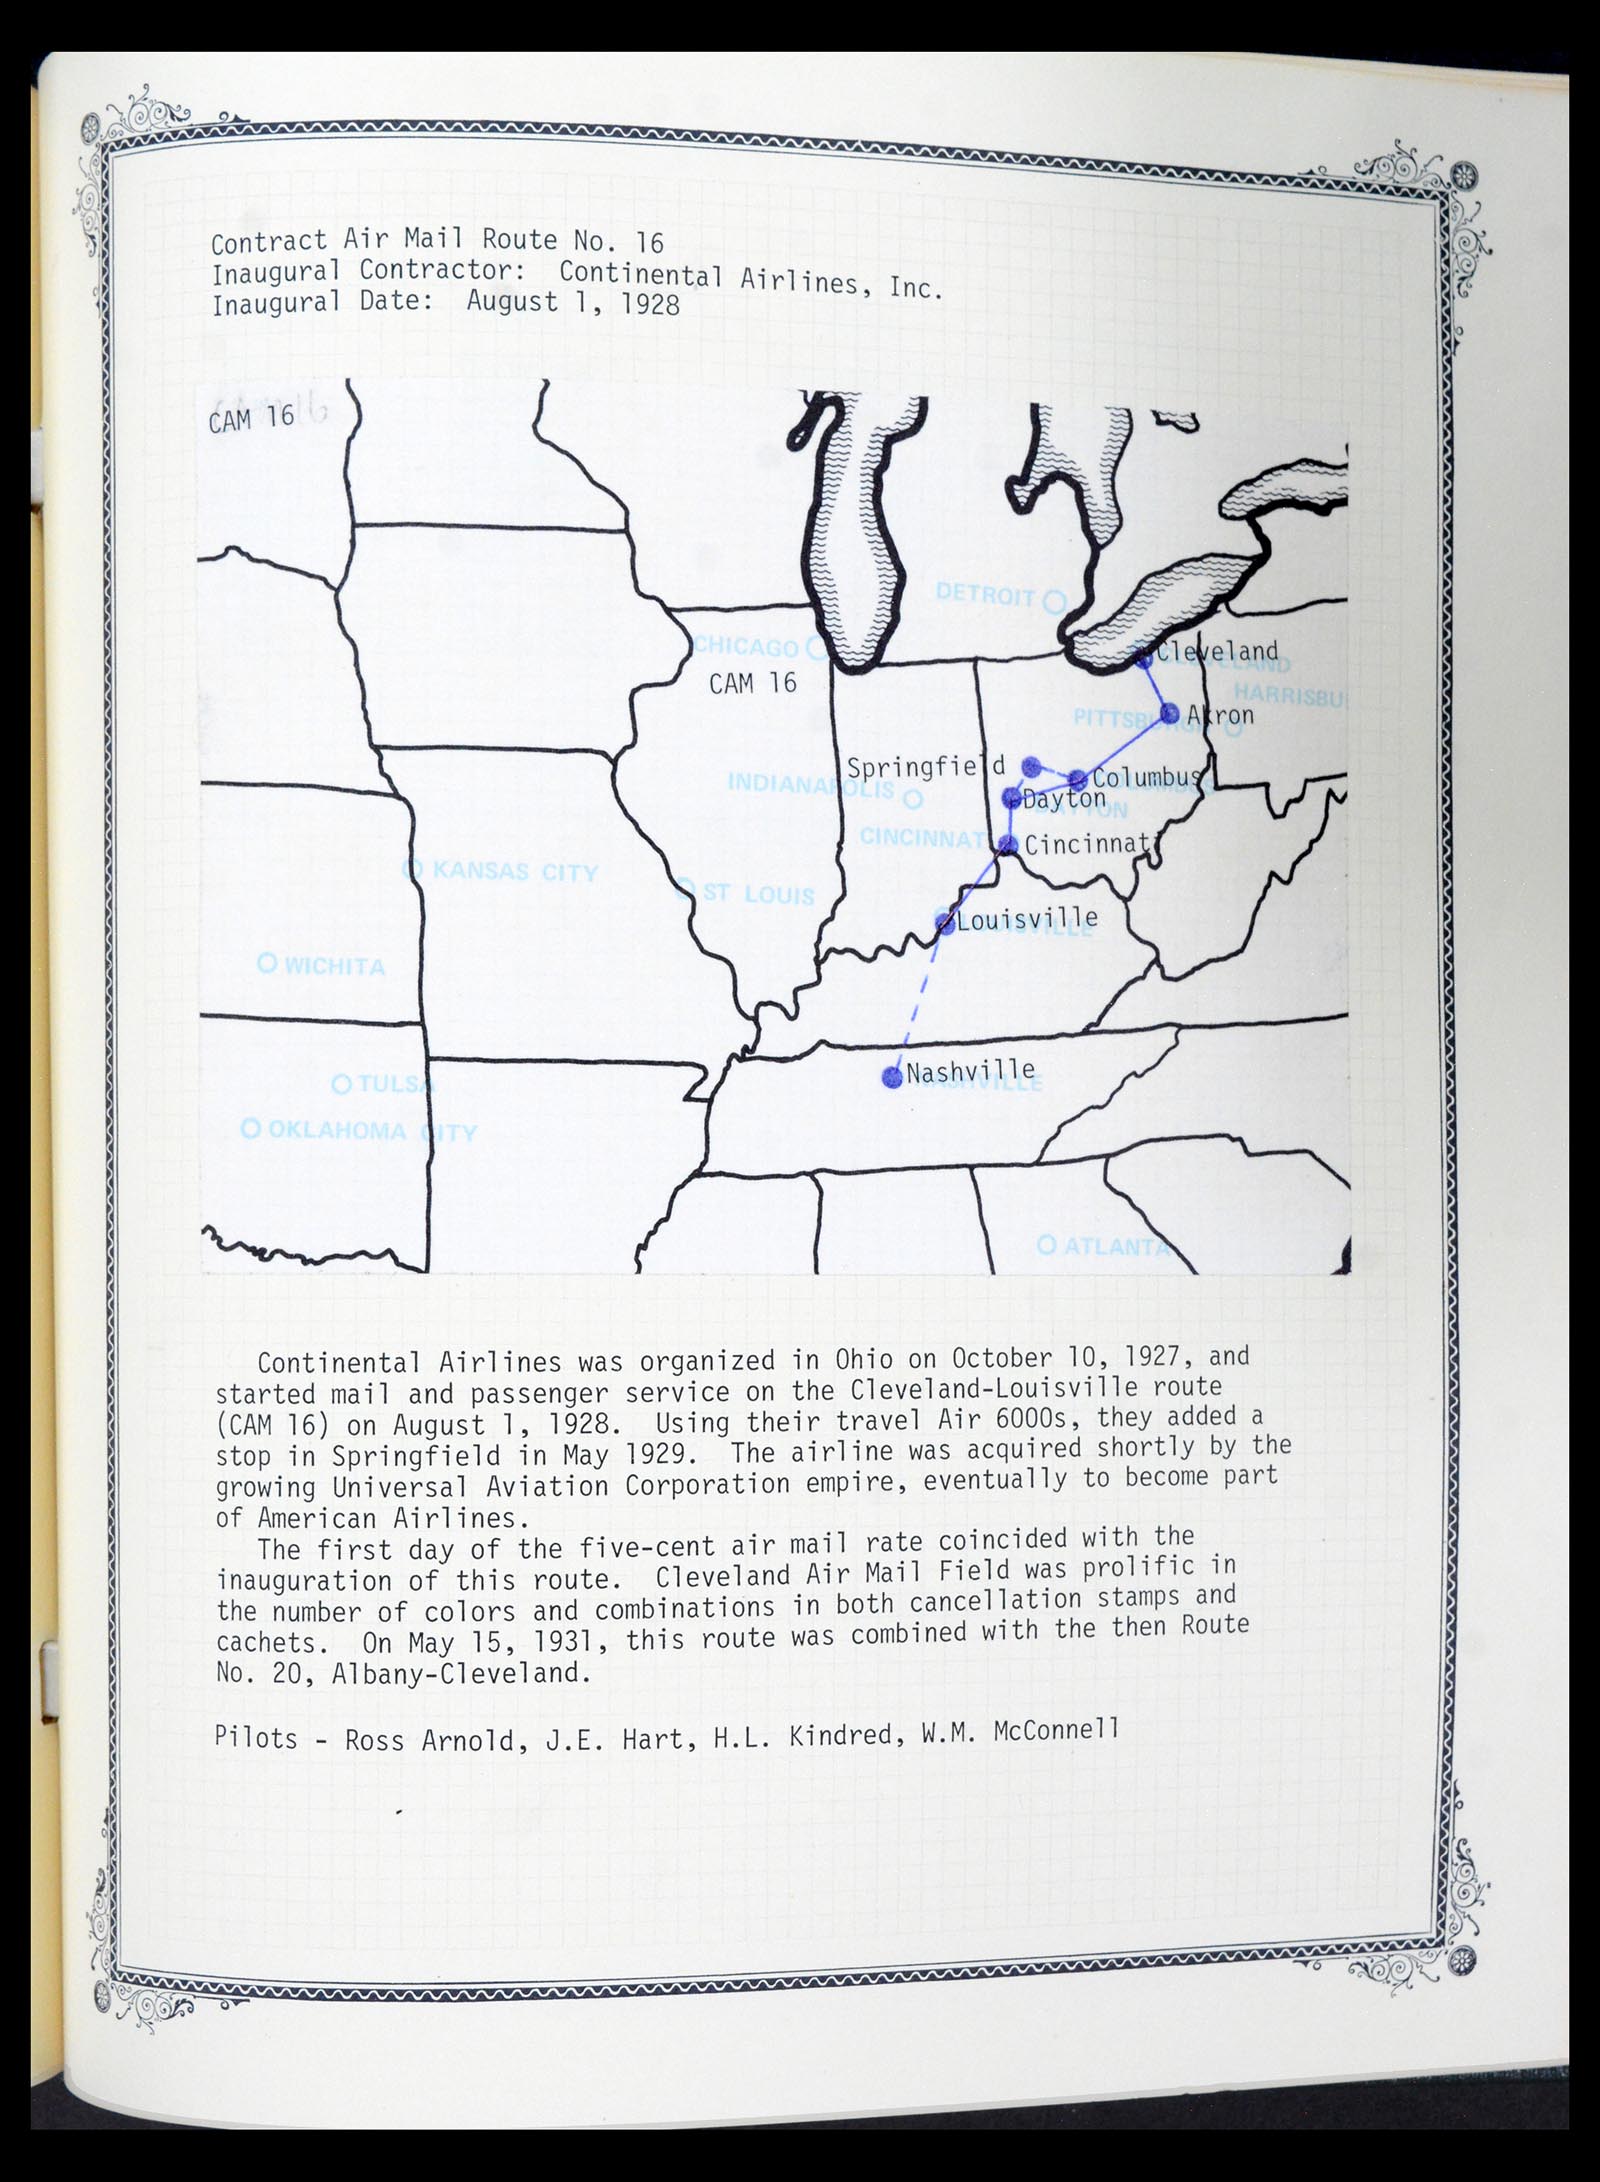 Contract Air Mail Route No. 16
Inaugural Contractor:  Continental Airlines, Inc.
Inaugural Date:  August 1, 1928
CAM 16
DETROIT
CHICAGO
Cleveland
CLEVELAND
CAM 16
HARRISBU
Akron
PITTSBURGH
Springfield
Columbus
COLUMBUS
INDIANAPOLIS
Dayton
DAYTON
CINCINNATI
Cincinnati
KANSAS CITY
ST LOUIS
Louisville
LOUISVILLE
WICHITA
Nashville
NASHVILLE
TULSA
OKLAHOMA CITY
ATLANTA
Continental Airlines was organized in Ohio on October 10, 1927, and
started mail and passenger service on the Cleveland-Louisville route
(CAM 16) on August 1, 1928.  Using their travel Air 6000s, they added a
stop in Springfield in May 1929.  The airline was acquired shortly by the
growing Universal Aviation Corporation empire, eventually to become part
of American Airlines.
The first day of the five-cent air mail rate coincided with the
inauguration of this route.  Cleveland Air Mail Field was prolific in
the number of colors and combinations in both cancellation stamps and
cachets.  On May 15, 1931, this route was combined with the then Route
No. 20, Albany-Cleveland.
Pilots - Ross Arnold, J.E. Hart, H.L. Kindred, W.M. McConnell